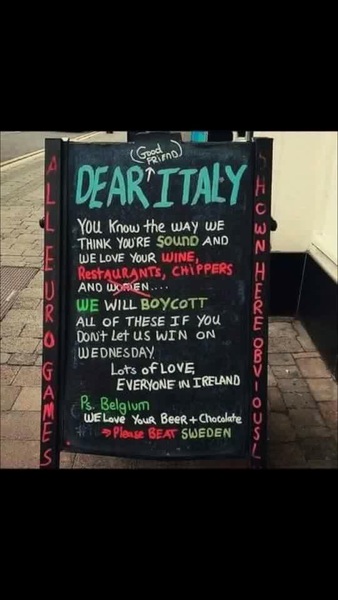 (Good FRIEND)
DEAR ITALY
You Know the WAY WE
THINK YOU'RE SOUND AND
WE LOVE YOUR WINE,
RESTAURANTS, CHIPPERS
AND WOMEN....
WE WILL BOYCOTT
ALL OF THESE IF YOU
DON'T LET US WIN ON
WEDNESDAY
Lots of LOVE,
EVERYONE IN IRELAND
Ps. Belgium
WE Love YOUR BEER + Chocolate
Please BEAT SWEDEN
ALL EURO GAMES
SHOWN HERE OBVIOUSL